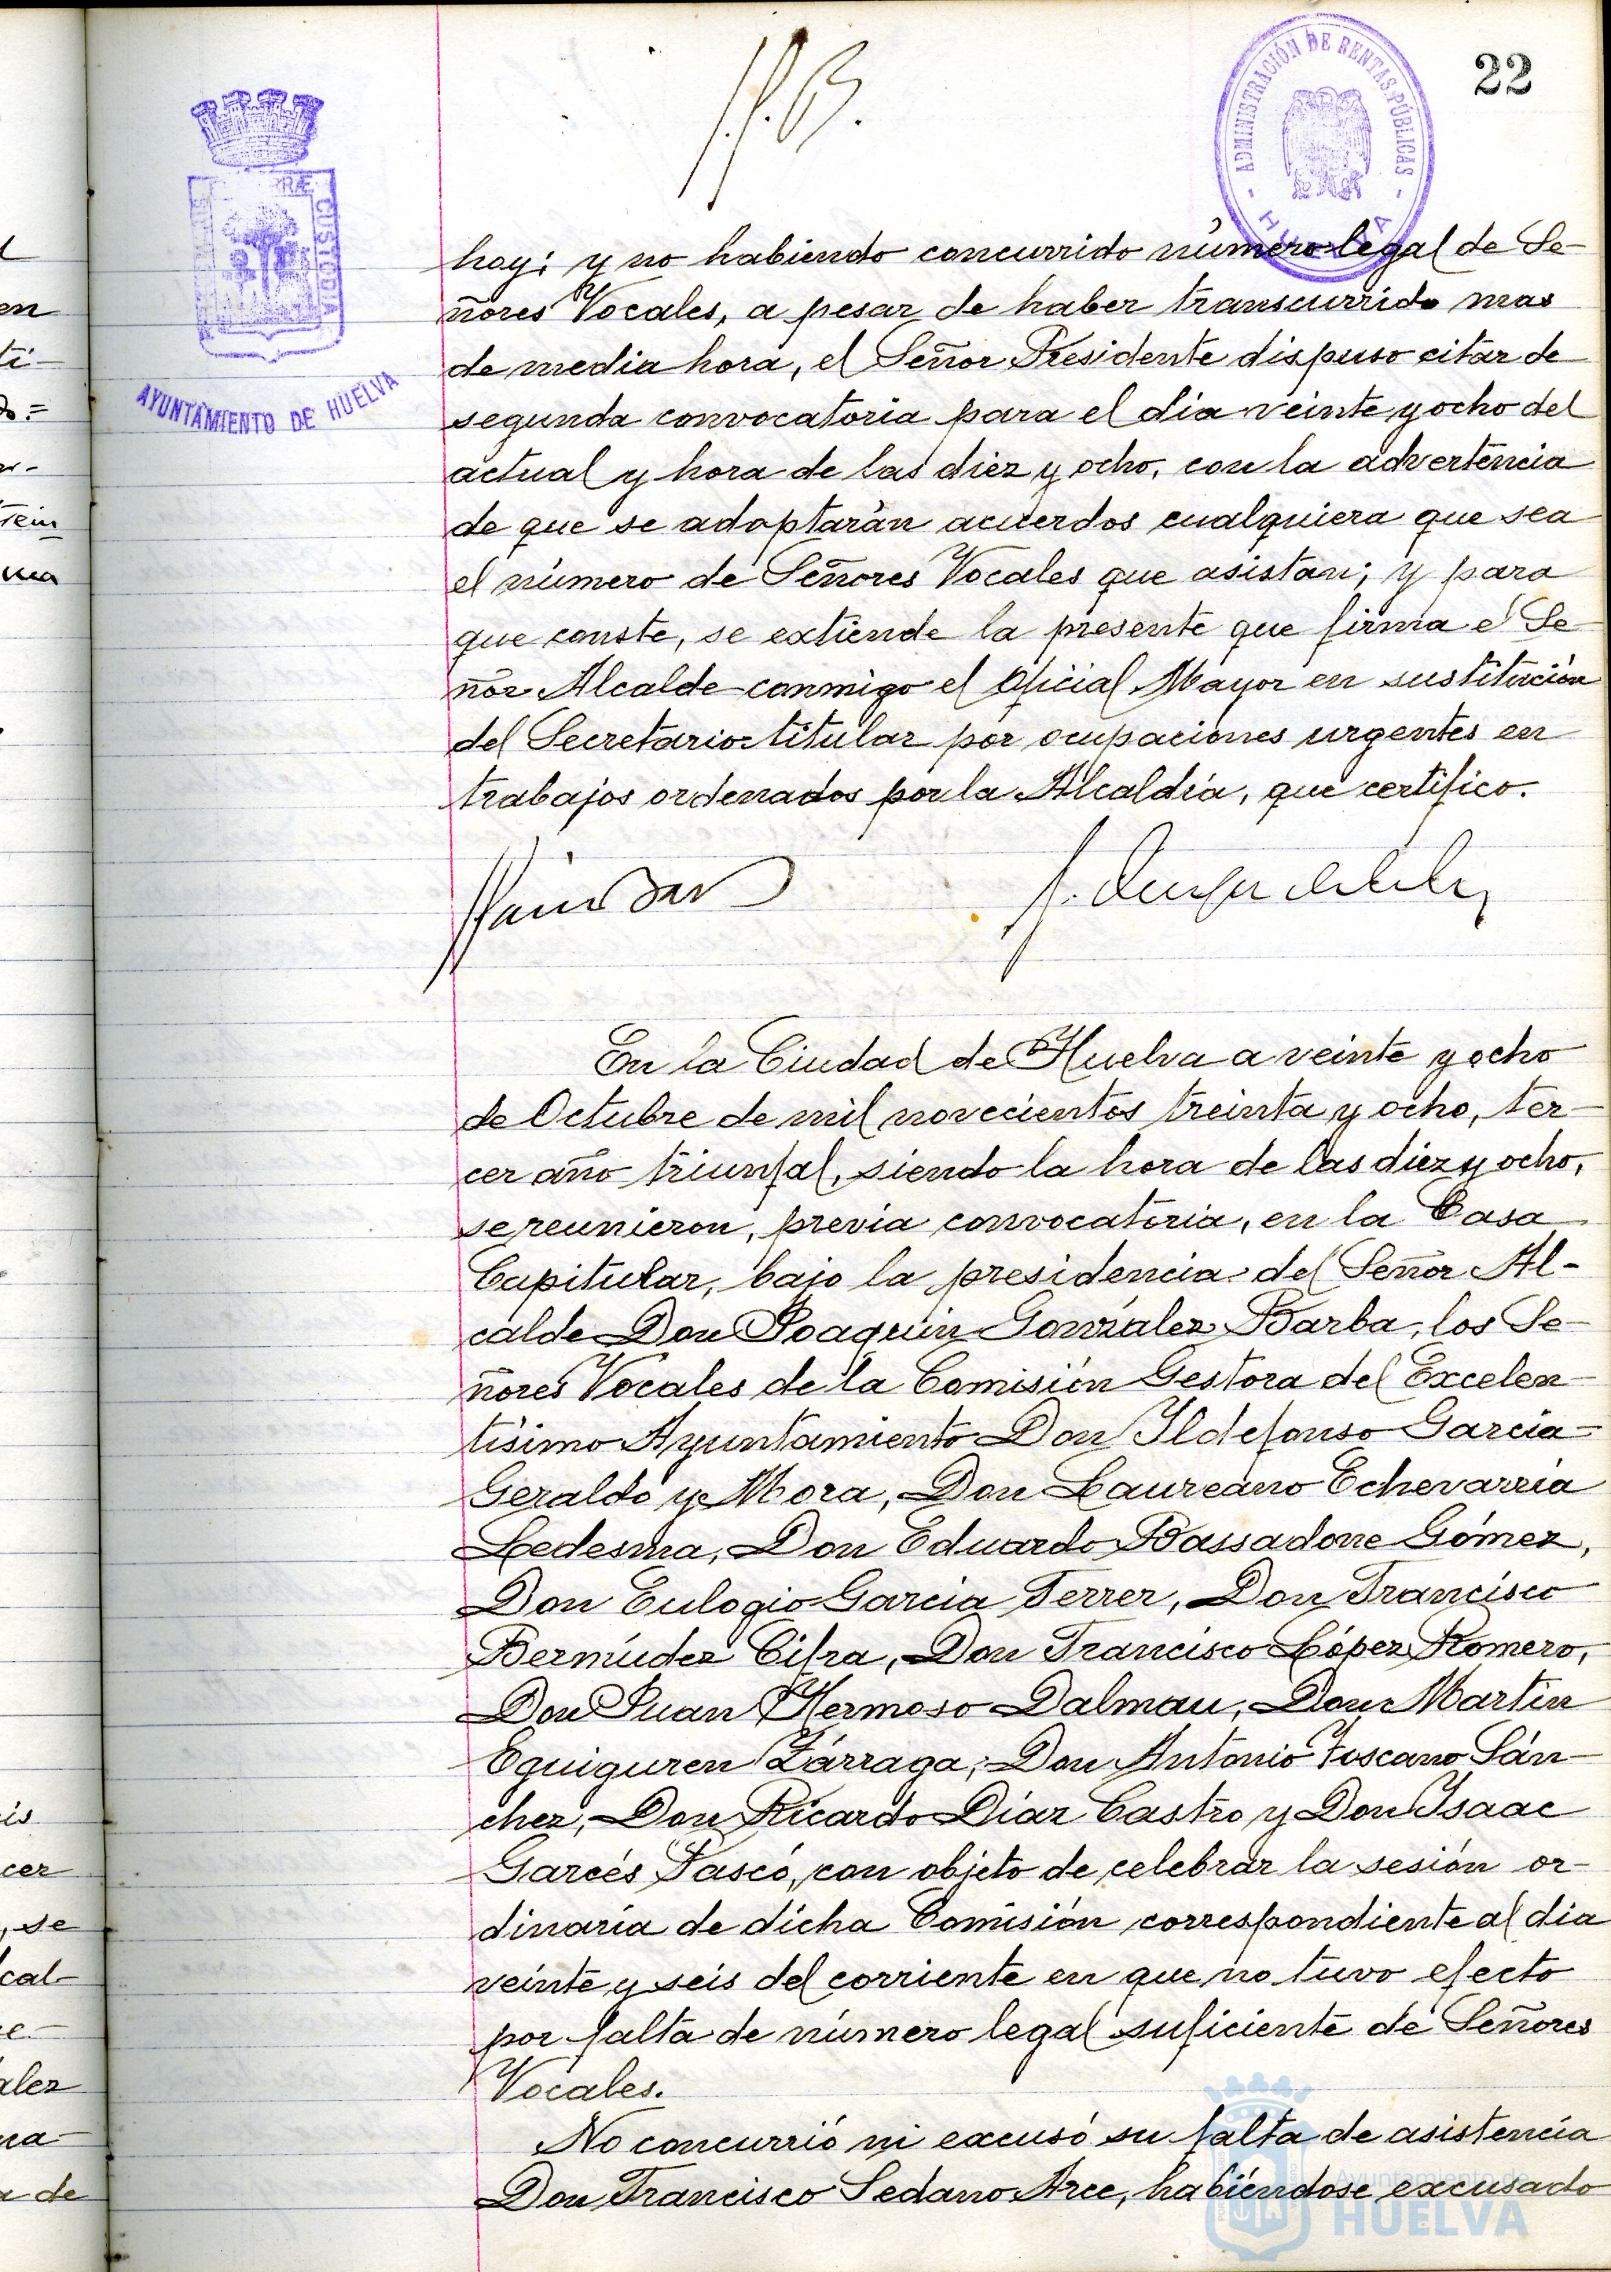 22
ADMINISTRACIÓN DE RENTAS PÚBLICAS
HUELVA
CUSTODIA
AYUNTAMIENTO DE HUELVA
hoy; y no habiendo concurrido número legal de Se-
ñores Vocales, a pesar de haber transcurrido mas
de media hora, el Señor Presidente dispuso citar de
segunda convocatoria para el dia veinte y ocho del
actual y hora de las diez y ocho, con la advertencia
de que se adoptarán acuerdos cualquiera que sea
el número de Señores Vocales que asistan; y para
que conste, se extiende la presente que firma el Se-
ñor Alcalde conmigo el Oficial Mayor en sustitución
del Secretario titular por ocupaciones urgentes en
trabajos ordenados por la Alcaldía, que certifico.
En la Ciudad de Huelva a veinte y ocho
de Octubre de mil novecientos treinta y ocho, ter-
cer año triunfal, siendo la hora de las diez y ocho,
se reunieron, previa convocatoria, en la Casa
Capitular, bajo la presidencia del Señor Al-
calde Don Joaquin González Barba, los Se-
ñores Vocales de la Comisión Gestora del Excelen-
tísimo Ayuntamiento Don Ildefonso Garcia-
Geraldo y Mora, Don Laureano Echevarría
Ledesma, Don Eduardo Bassadone Gómez,
Don Eulogio Garcia Ferrer, Don Francisco
Bermúdez Cifra, Don Francisco López Romero,
Don Juan Hermoso Dalmau, Don Martin
Eguiguren Zárraga, Don Antonio Toscano Sán-
chez, Don Ricardo Díaz Castro y Don Isaac
Garcés Pascó, con objeto de celebrar la sesión or-
dinaria de dicha Comisión correspondiente al dia
veinte y seis del corriente en que no tuvo efecto
por falta de número legal suficiente de Señores
Vocales.
No concurrió ni excusó su falta de asistencia
Don Francisco Sedano Arce, habiéndose excusado
Ayuntamiento de
HUELVA